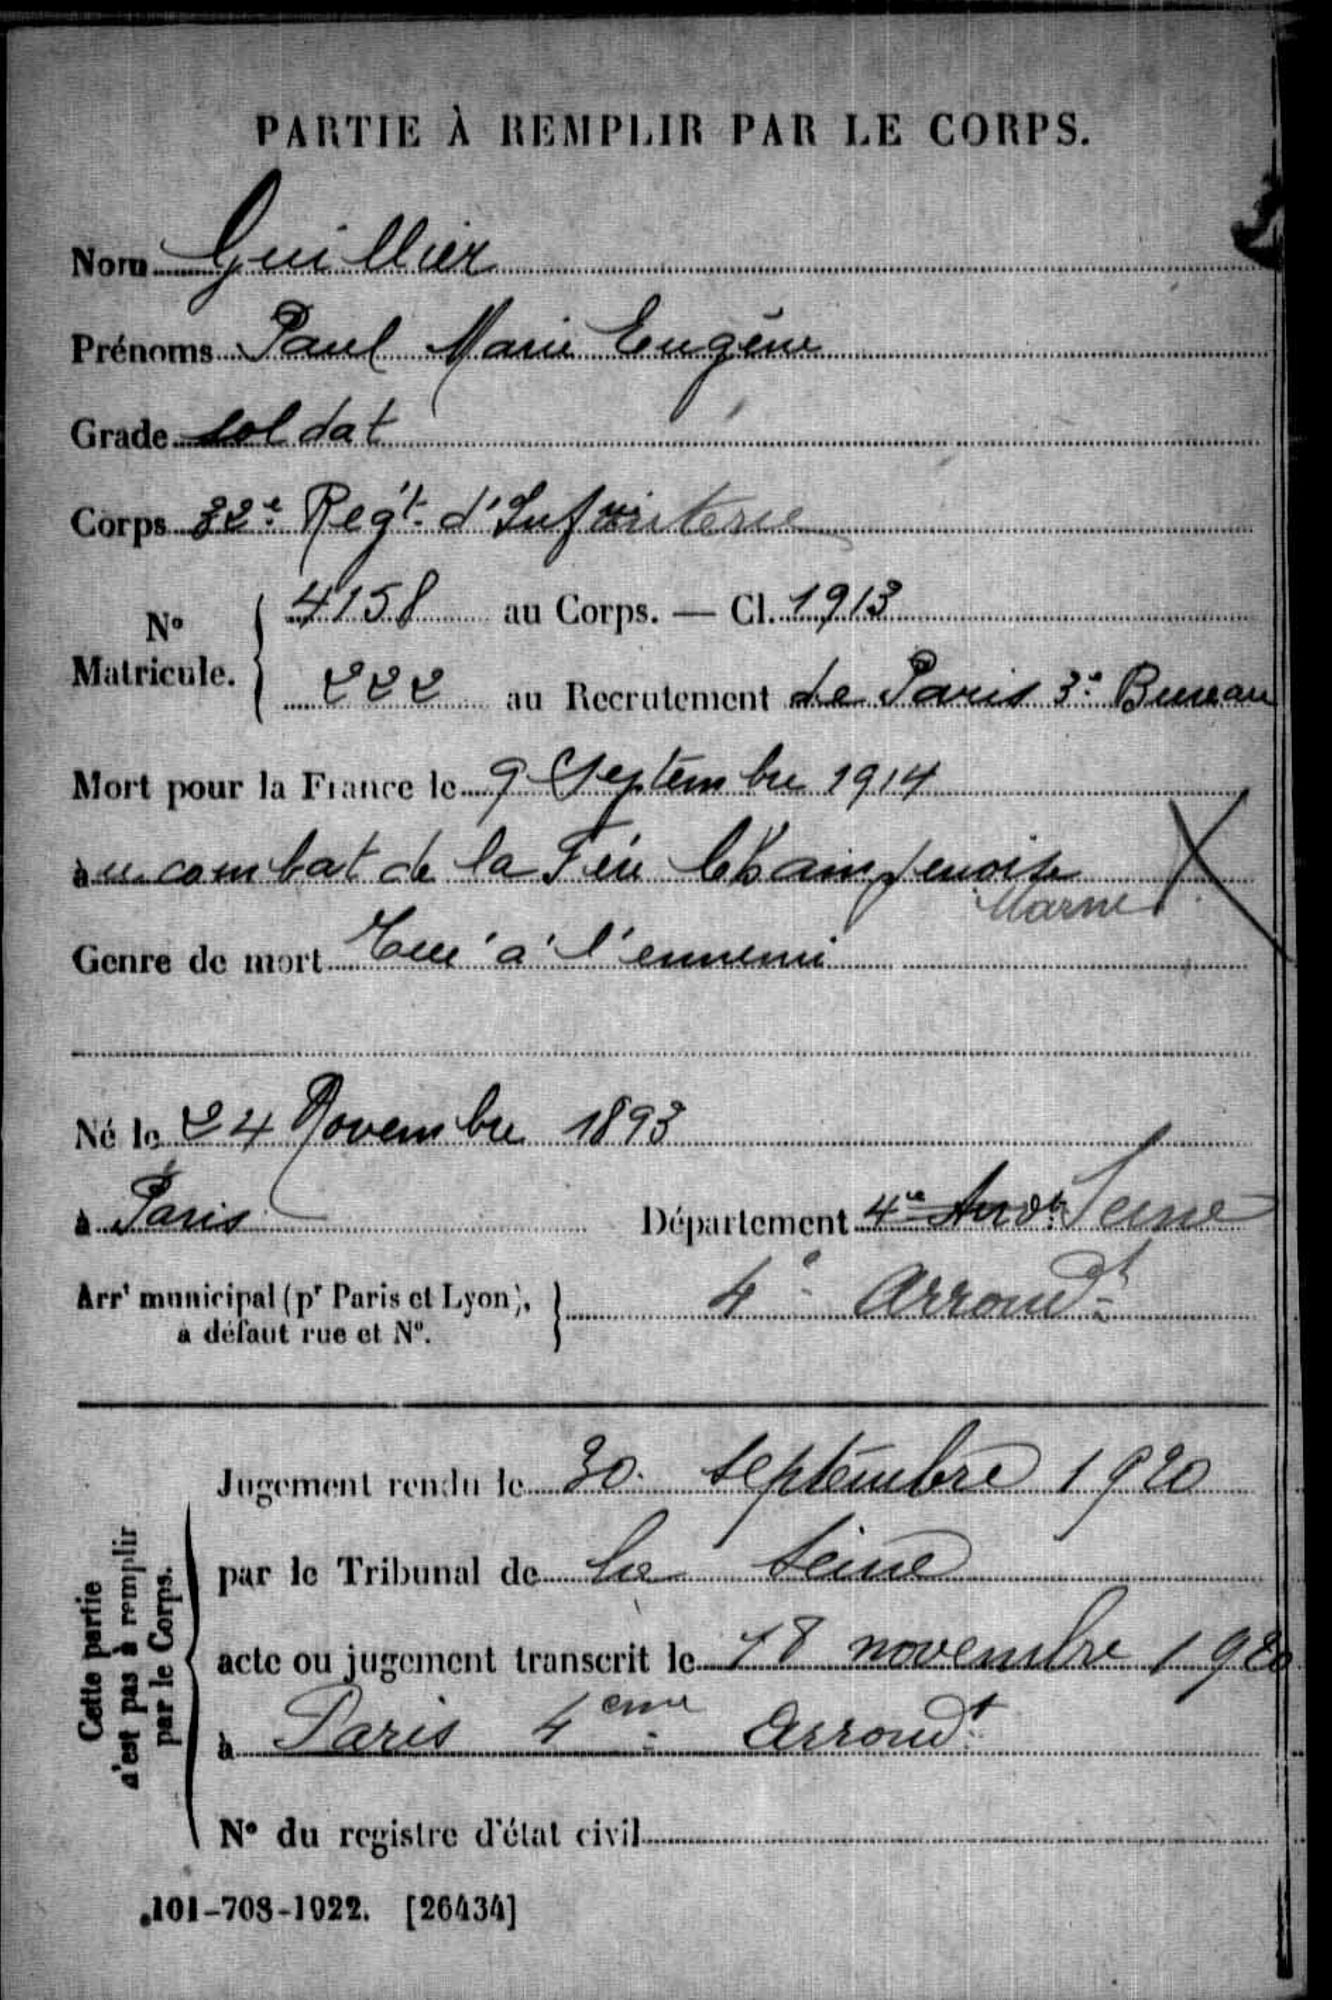 PARTIE À REMPLIR PAR LE CORPS.
Nom Guillier
Prénoms Paul Marie Eugène
Grade soldat
Corps 32e Regt d'Infanterie
N° Matricule. 4158 au Corps. — Cl. 1913
222 au Recrutement de Paris 3e Bureau
Mort pour la France le 9 Septembre 1914
au combat de la Fère Champenoise
Marne
Genre de mort Tué à l'ennemi
Né le 24 Novembre 1893
à Paris Département 4e Arrdt Seine
Arrt municipal (pr Paris et Lyon), à défaut rue et N°. 4e Arroundt
Cette partie n'est pas à remplir par le Corps.
Jugement rendu le 30 septembre 1920
par le Tribunal de la Seine
acte ou jugement transcrit le 18 novembre 1920
à Paris 4eme Arroundt
N° du registre d'état civil
101-708-1922. [26434]